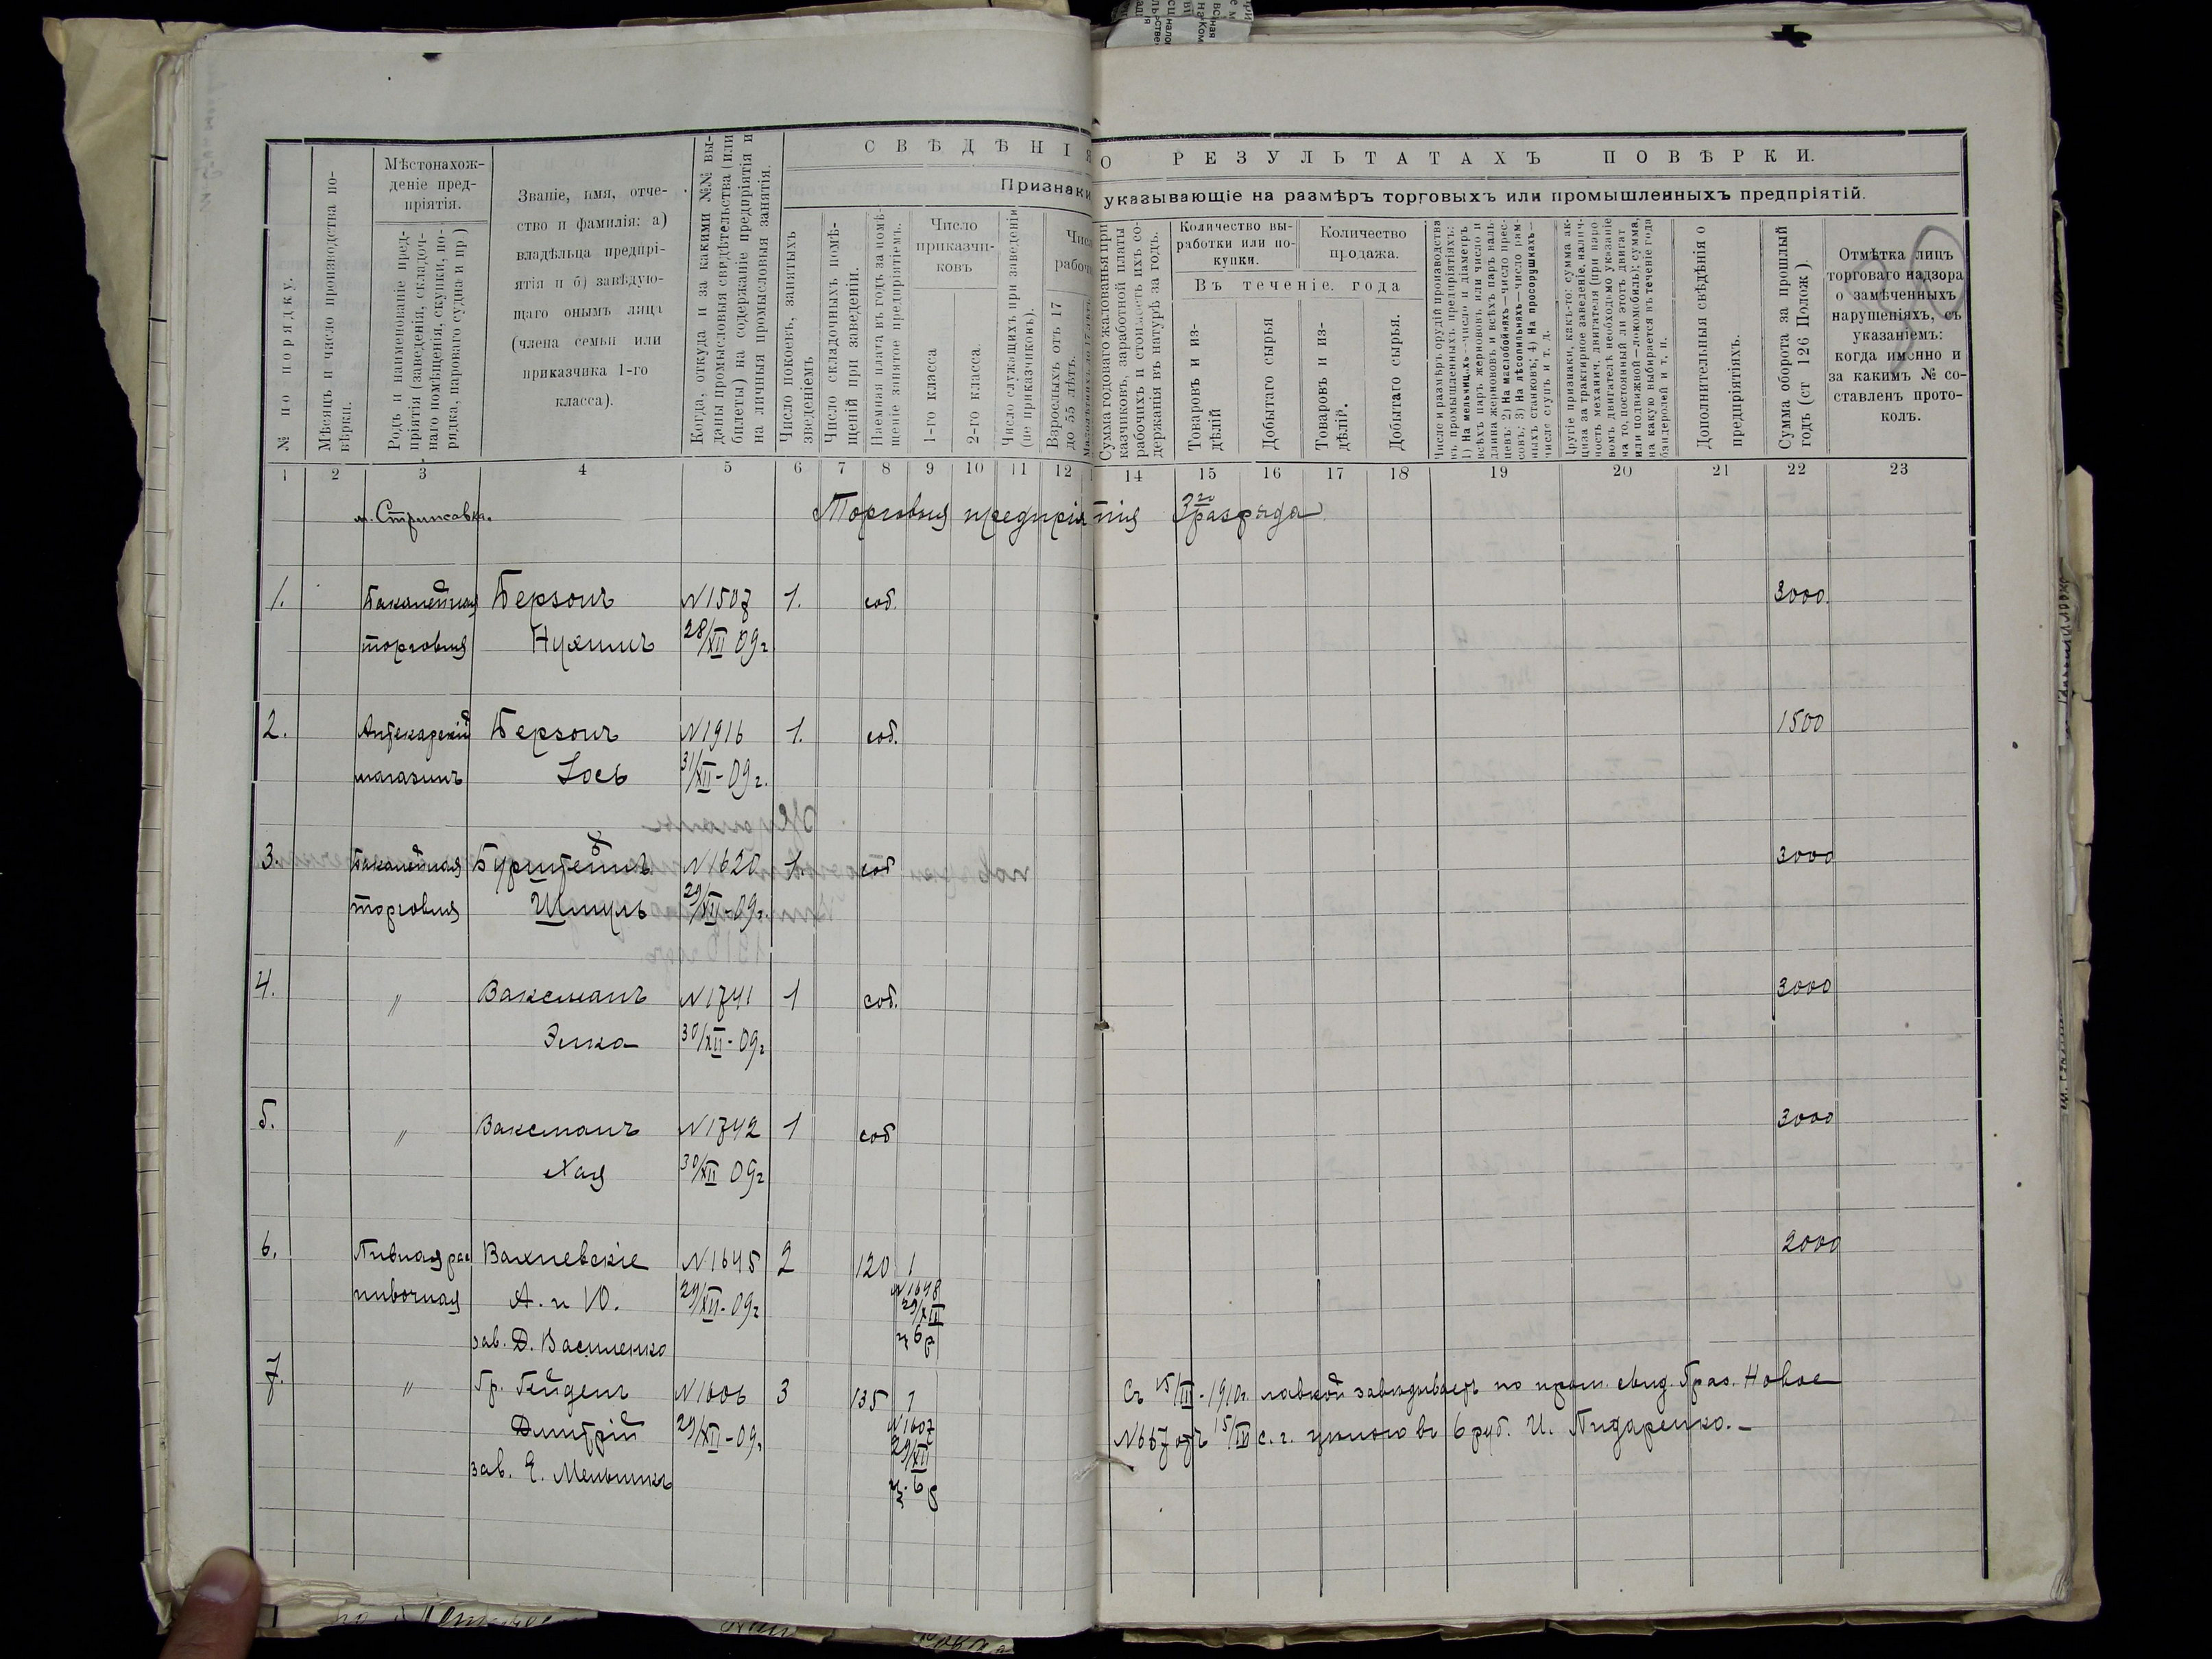 СВѢДѢНІЯ О РЕЗУЛЬТАТАХЪ ПОВѢРКИ.
Признаки указывающіе на размѣръ торговыхъ или промышленныхъ предпріятій.
№ по порядку.
Мѣсяцъ и число производства по-
вѣрки.
Мѣстонахож-
деніе пред-
пріятія.
Родъ и наименованіе пред-
пріятія (заведенія, складоч-
наго помѣщенія, скупки, по-
рядка, пароваго судна и пр )
Званіе, имя, отче-
ство и фамилія: а)
владѣльца предпрі-
ятія и б) завѣдую-
щаго онымъ лица
(члена семьи или
приказчика 1-го
класса).
Когда, откуда и за какими №№ вы-
даны промысловыя свидѣтельства (или
билеты) на содержаніе предпріятія и
на личныя промысловыя занятія.
Число покоевъ, занятыхъ
зведеніемъ
Число складочныхъ помѣ-
щеній при заведеніи.
Наемная плата въ годъ за помѣ-
щеніе, занятое предпріятіемъ.
Число
приказчи-
ковъ
1-го класса
2-го класса.
Число служащихъ при заведеніи
(не приказчиковъ).
Взрослыхъ отъ 17
до 55 лѣтъ.
Сумма годоваго жалованья при
казчиковъ, заработной платы
рабочихъ и стоимость ихъ со-
держанія въ натурѣ за годъ.
Количество вы-
работки или по-
купки.
Количество
продажа.
Въ теченіе. года
Товаровъ и из-
дѣлій
Добытаго сырья
Товаровъ и из-
дѣлій.
Добытаго сырья.
Число и размѣръ орудій производства
въ промышленныхъ предпріятіяхъ:
1) На мельницахъ—число и діаметръ
всѣхъ паръ жерновокъ или число и
длина жерновокъ и всѣхъ паръ валь-
цевъ; 2) На маслобойняхъ—число прес-
совъ; 3) На лѣсопильняхъ—число рам-
ныхъ станковъ; 4) На просорушкахъ—
число ступъ и т. д.
Другіе признаки, какъ-то: сумма ак-
циза за трактирное заведеніе, налич-
ность механич. двигателя (при паро
вомъ двигателѣ необходимо указаніе
на то, постоянный ли этотъ двигат
или подвижной—локомобиль); сумма,
на какую выбирается въ теченіе года
бандеролей и т. п.
Дополнительныя свѣдѣнія о
предпріятіяхъ.
Сумма оборота за прошлый
годъ (ст 126 Полож ).
Отмѣтка лицъ
торговаго надзора
о замѣченныхъ
нарушеніяхъ, съ
указаніемъ:
когда именно и
за какимъ № со-
ставленъ прото-
колъ.
1 2 3 4 5 6 7 8 9 10 11 12 14 15 16 17 18 19 20 21 22 23
м. Стрижавка. Торговыя предпріятія 3го разряда
1. Бакалейная Берзонъ N1507 1. соб. 3000.
торговля Нухимъ 28/XII 09г
2. Аптекарскій Берзонъ N1916 1. соб. 1500
магазинъ Іось 31/XII-09г.
3. Бакалейная Бурштейнъ N1620 1. соб 3000
торговля Шмуль 29/XII-09г.
4. " Ваксманъ N1741 1 соб. 3000
Элка 30/XII-09г
5. " Ваксманъ N1742 1 соб 3000
Хая 30/XII 09г
6. Пивная рас Вахневскіе N1645 2 120 1 2000
пивочная А. и Ю. 29/XII-09г N1648
29/XII
зав. Д. Василенко ц 6 р
7. " Гр. Гейденъ N1606 3 135 1 Съ 15/III-1910г. лавкой завѣдываетъ по пром. свид. Праз. Новое
Дмитрій 29/XII-09г N1607 N667 отъ 15/III с. г. цѣною въ 6 руб. И. Пидаренко.-
29/XII
зав. Е. Мельникъ ц. 6 р